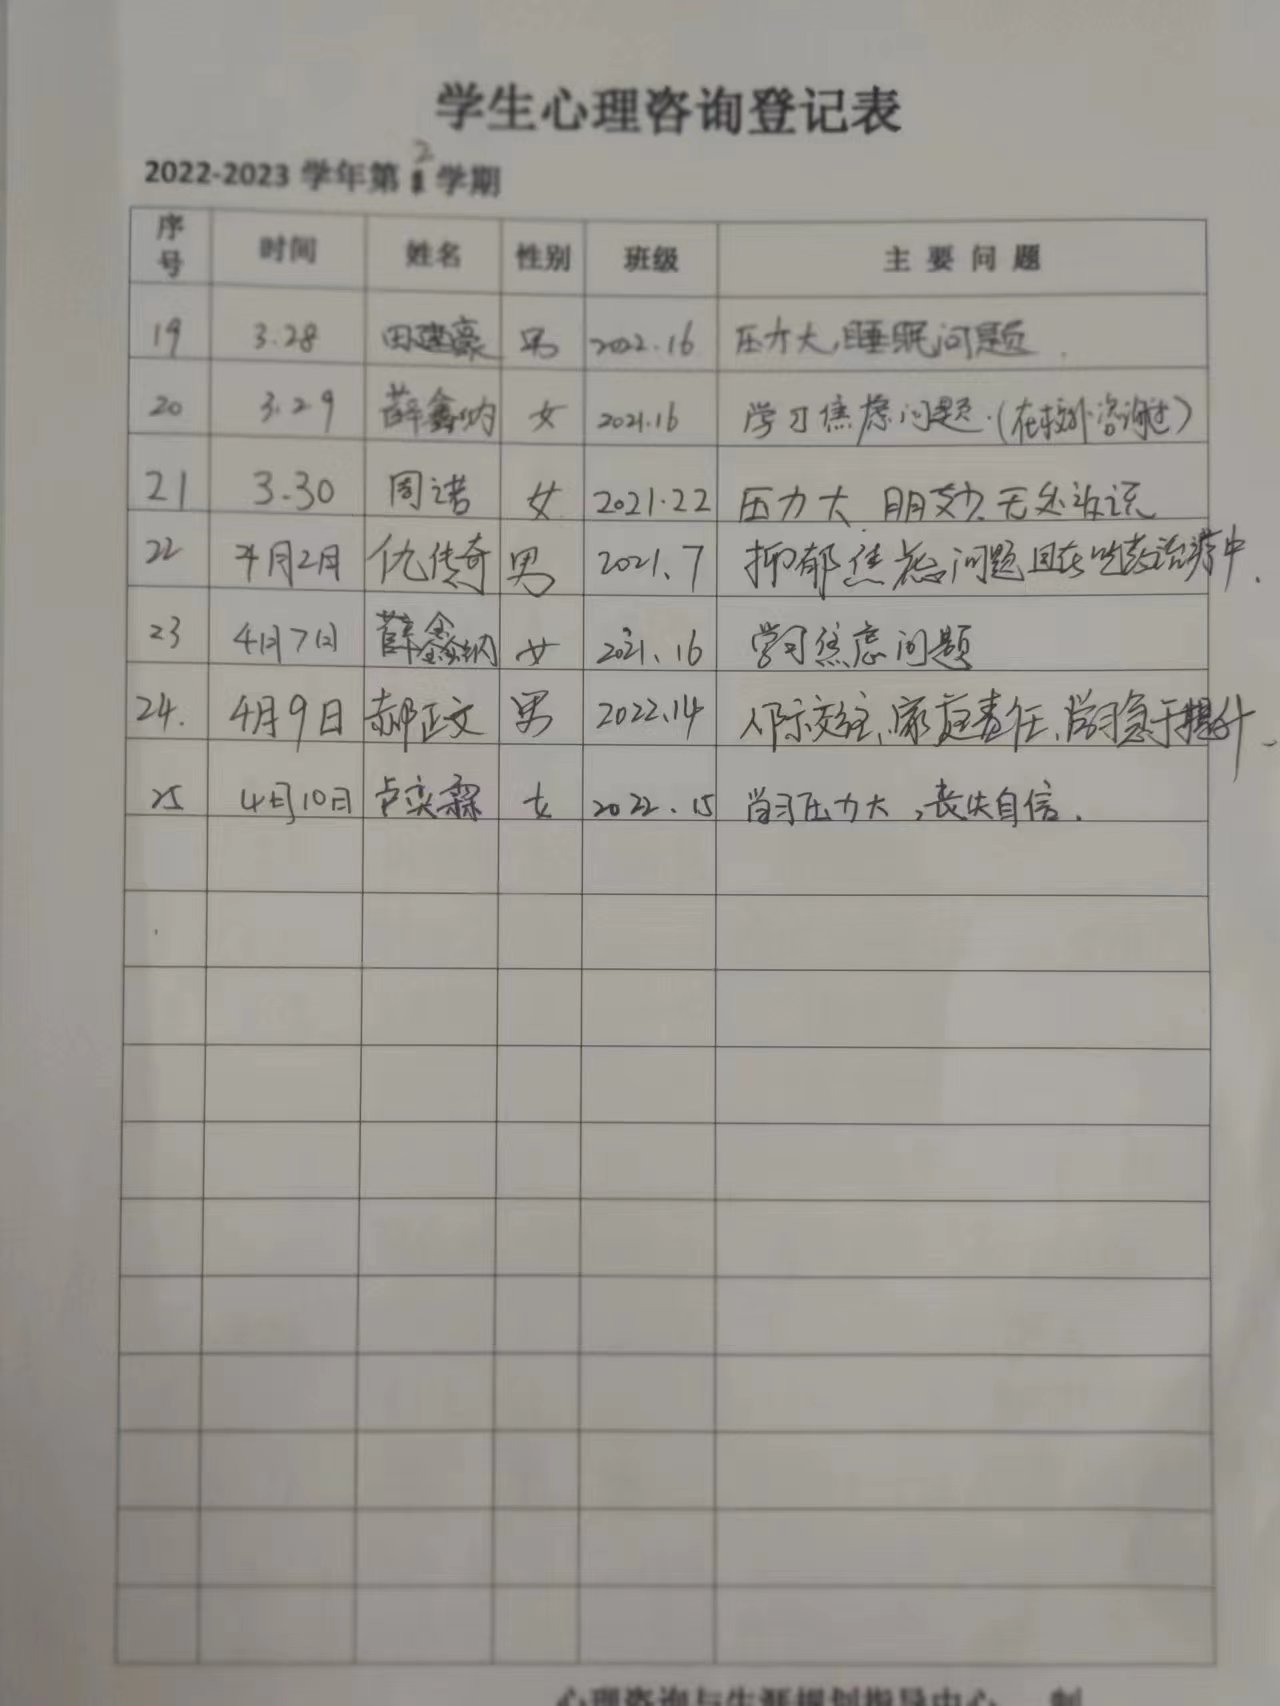 学生心理咨询登记表
2022-2023 学年第2学期
序号 时间 姓名 性别 班级 主要问题
19 3.28 田建豪 男 2022.16 压力大,睡眠问题.
20 3.29 薛鑫纳 女 2021.16 学习焦虑问题.(在校外咨询过)
21 3.30 周诺 女 2021.22 压力大 朋友少 无处诉说
22 4月2日 仇传奇 男 2021.7 抑郁焦虑问题且在吃药治疗中.
23 4月7日 薛鑫纳 女 2021.16 学习焦虑问题
24. 4月9日 郝正文 男 2022.14 人际交往、家庭责任、学习急于提升、
25 4月10日 卢奕霖 女 2022.15 学习压力大,丧失自信.
心理咨询与生涯规划指导中心 制